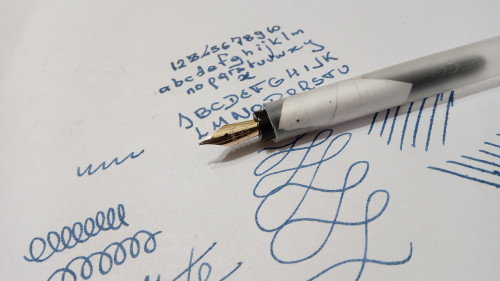 1234567890
abcdefghijklm
nopqrstuvwxy
z
ABCDEFGHIJK
LMNOPQRSTU